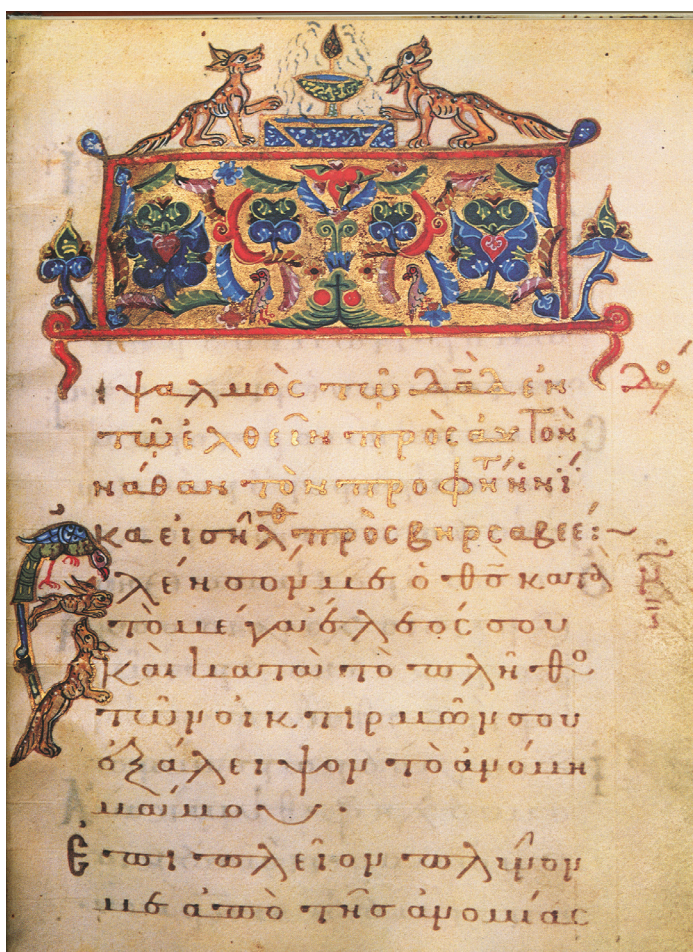 ι ψαλμὸς τῶ δᾱδ ἐν
τῶ ἐλθεῖν πρὸς ἀυτὸν
νάθαν τὸν προφήτην ἡνί
κα εἰσῆλθ πρὸς βηρσαβεέ:~
Ἐλέησόν με ὁ θς̄ κατὰ
τὸ μέγα ἔλεός σου
καὶ κατὰ τὸ πλῆθο
τῶν οἰκτιρμῶν σου
ἐξάλειψον τὸ ἀνόμη
μά μου
Ἐπι πλεῖον πλῦνον
με ἀπὸ τῆς ἀνομίας